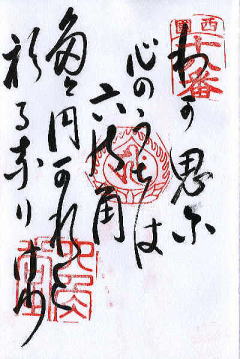 西國
十八番
わが思ふ
心のうちは
六の角
たゞ円かれと
祈るなりけり